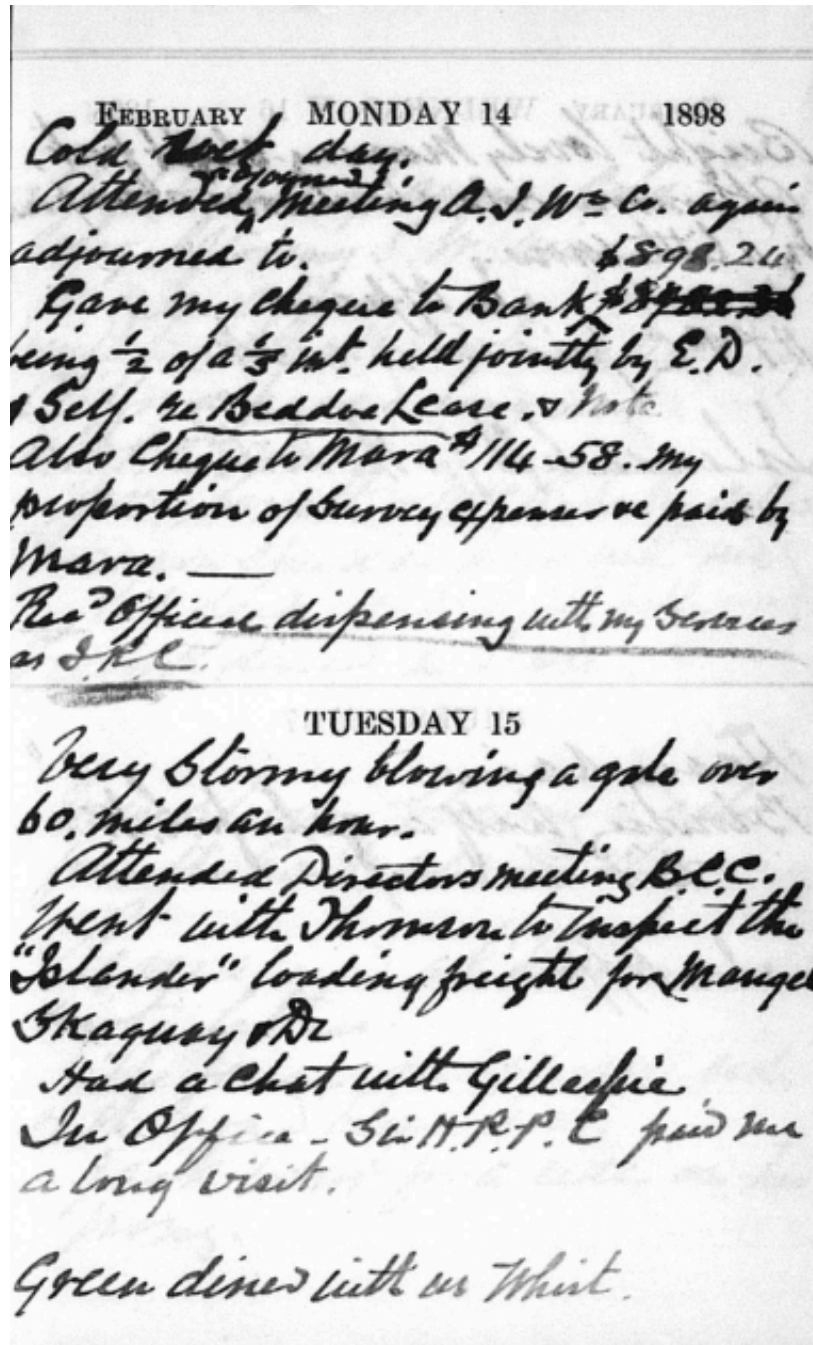 FEBRUARY MONDAY 14 1898
Cold wet day.
adjourned
Attended Meeting A. I. Ws Co. again
adjourned to. $898.26
Gave my cheque to Bank
being ½ of a ⅓ int. held jointly by E.D.
& Self. re Beddoe Lease. & Note
Also Cheque to Mara $114-58. my
proportion of Survey expenses re paid by
Mara. —
Recd Official dispensing with my Services
as I.R.C.
TUESDAY 15
Very Stormy blowing a gale over
60. miles an hour.
Attended Directors meeting B.C.C.
Went with Thomson to inspect the
"Islander" loading freight for
Skaguay & Do
Had a Chat with Gillespie
In Office - Sir H.P.P.C paid me
a long visit.
Green dined with us Whist.